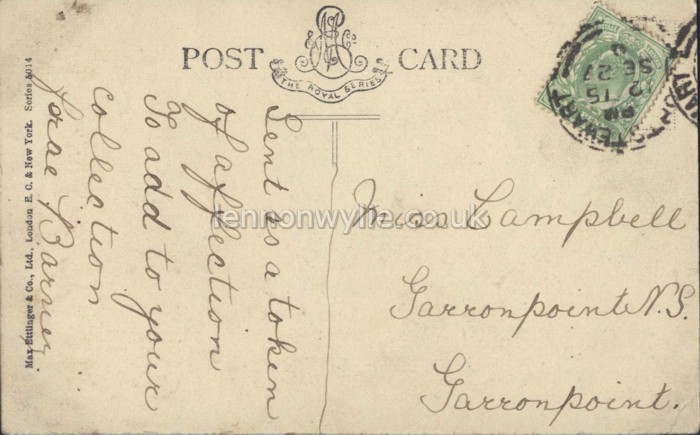 POST CARD
THE ROYAL SERIES
PORTSTEWART
12 15 PM
SE 27
Sent as a token
of affection
To add to your
collection
Barney
Miss Campbell
Garronpoint N.S.
Garronpoint.
Max Ettlinger & Co., Ltd., London E. C. & New York. Series 5014
lennonwylie.co.uk